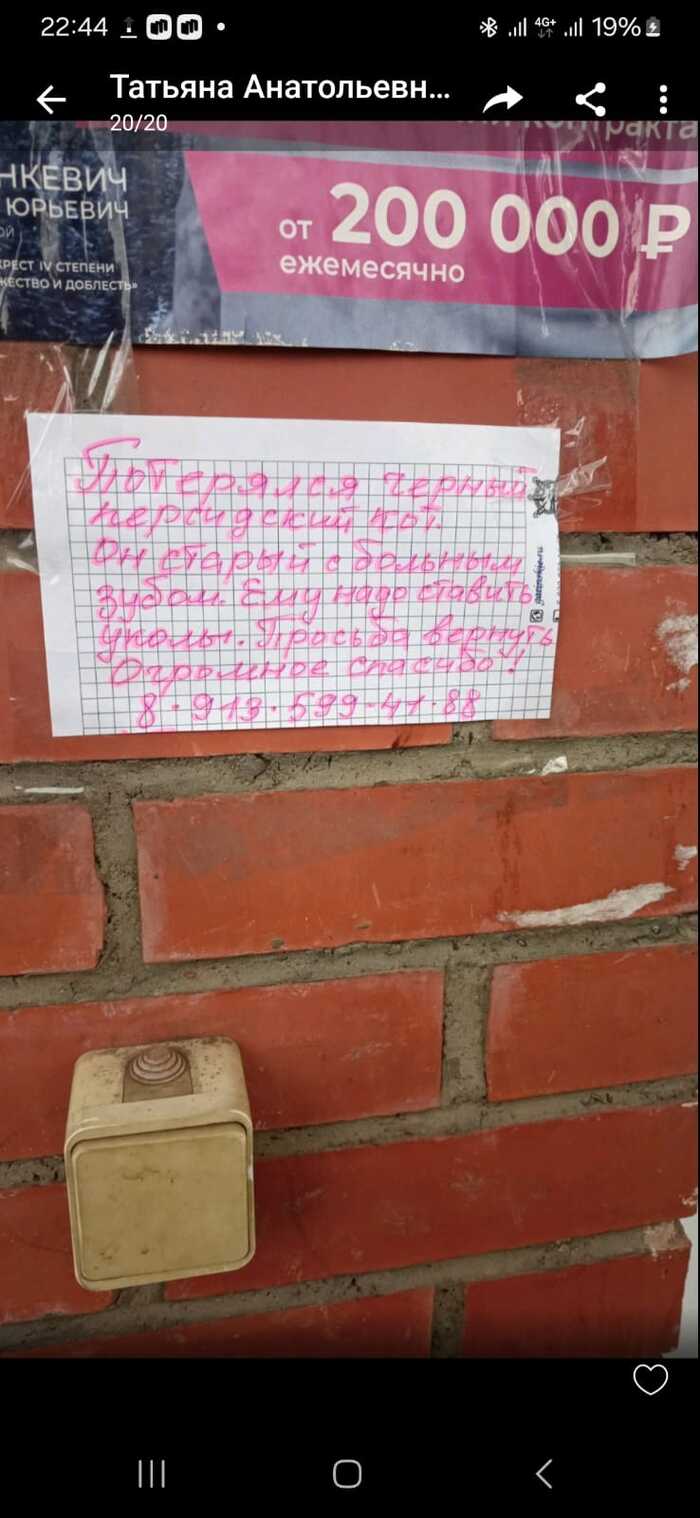 22:44
4G+
19%
Татьяна Анатольевн...
20/20
контракта
НКЕВИЧ
ЮРЬЕВИЧ
ОЙ
РЕСТ IV СТЕПЕНИ
ЖЕСТВО И ДОБЛЕСТЬ»
от 200 000 ₽
ежемесячно
Потерялся черный
персидский кот.
Он старый с больным
зубом. Ему надо ставить
уколы. Просьба вернуть
Огромное спасибо!
8·913·599-41·88